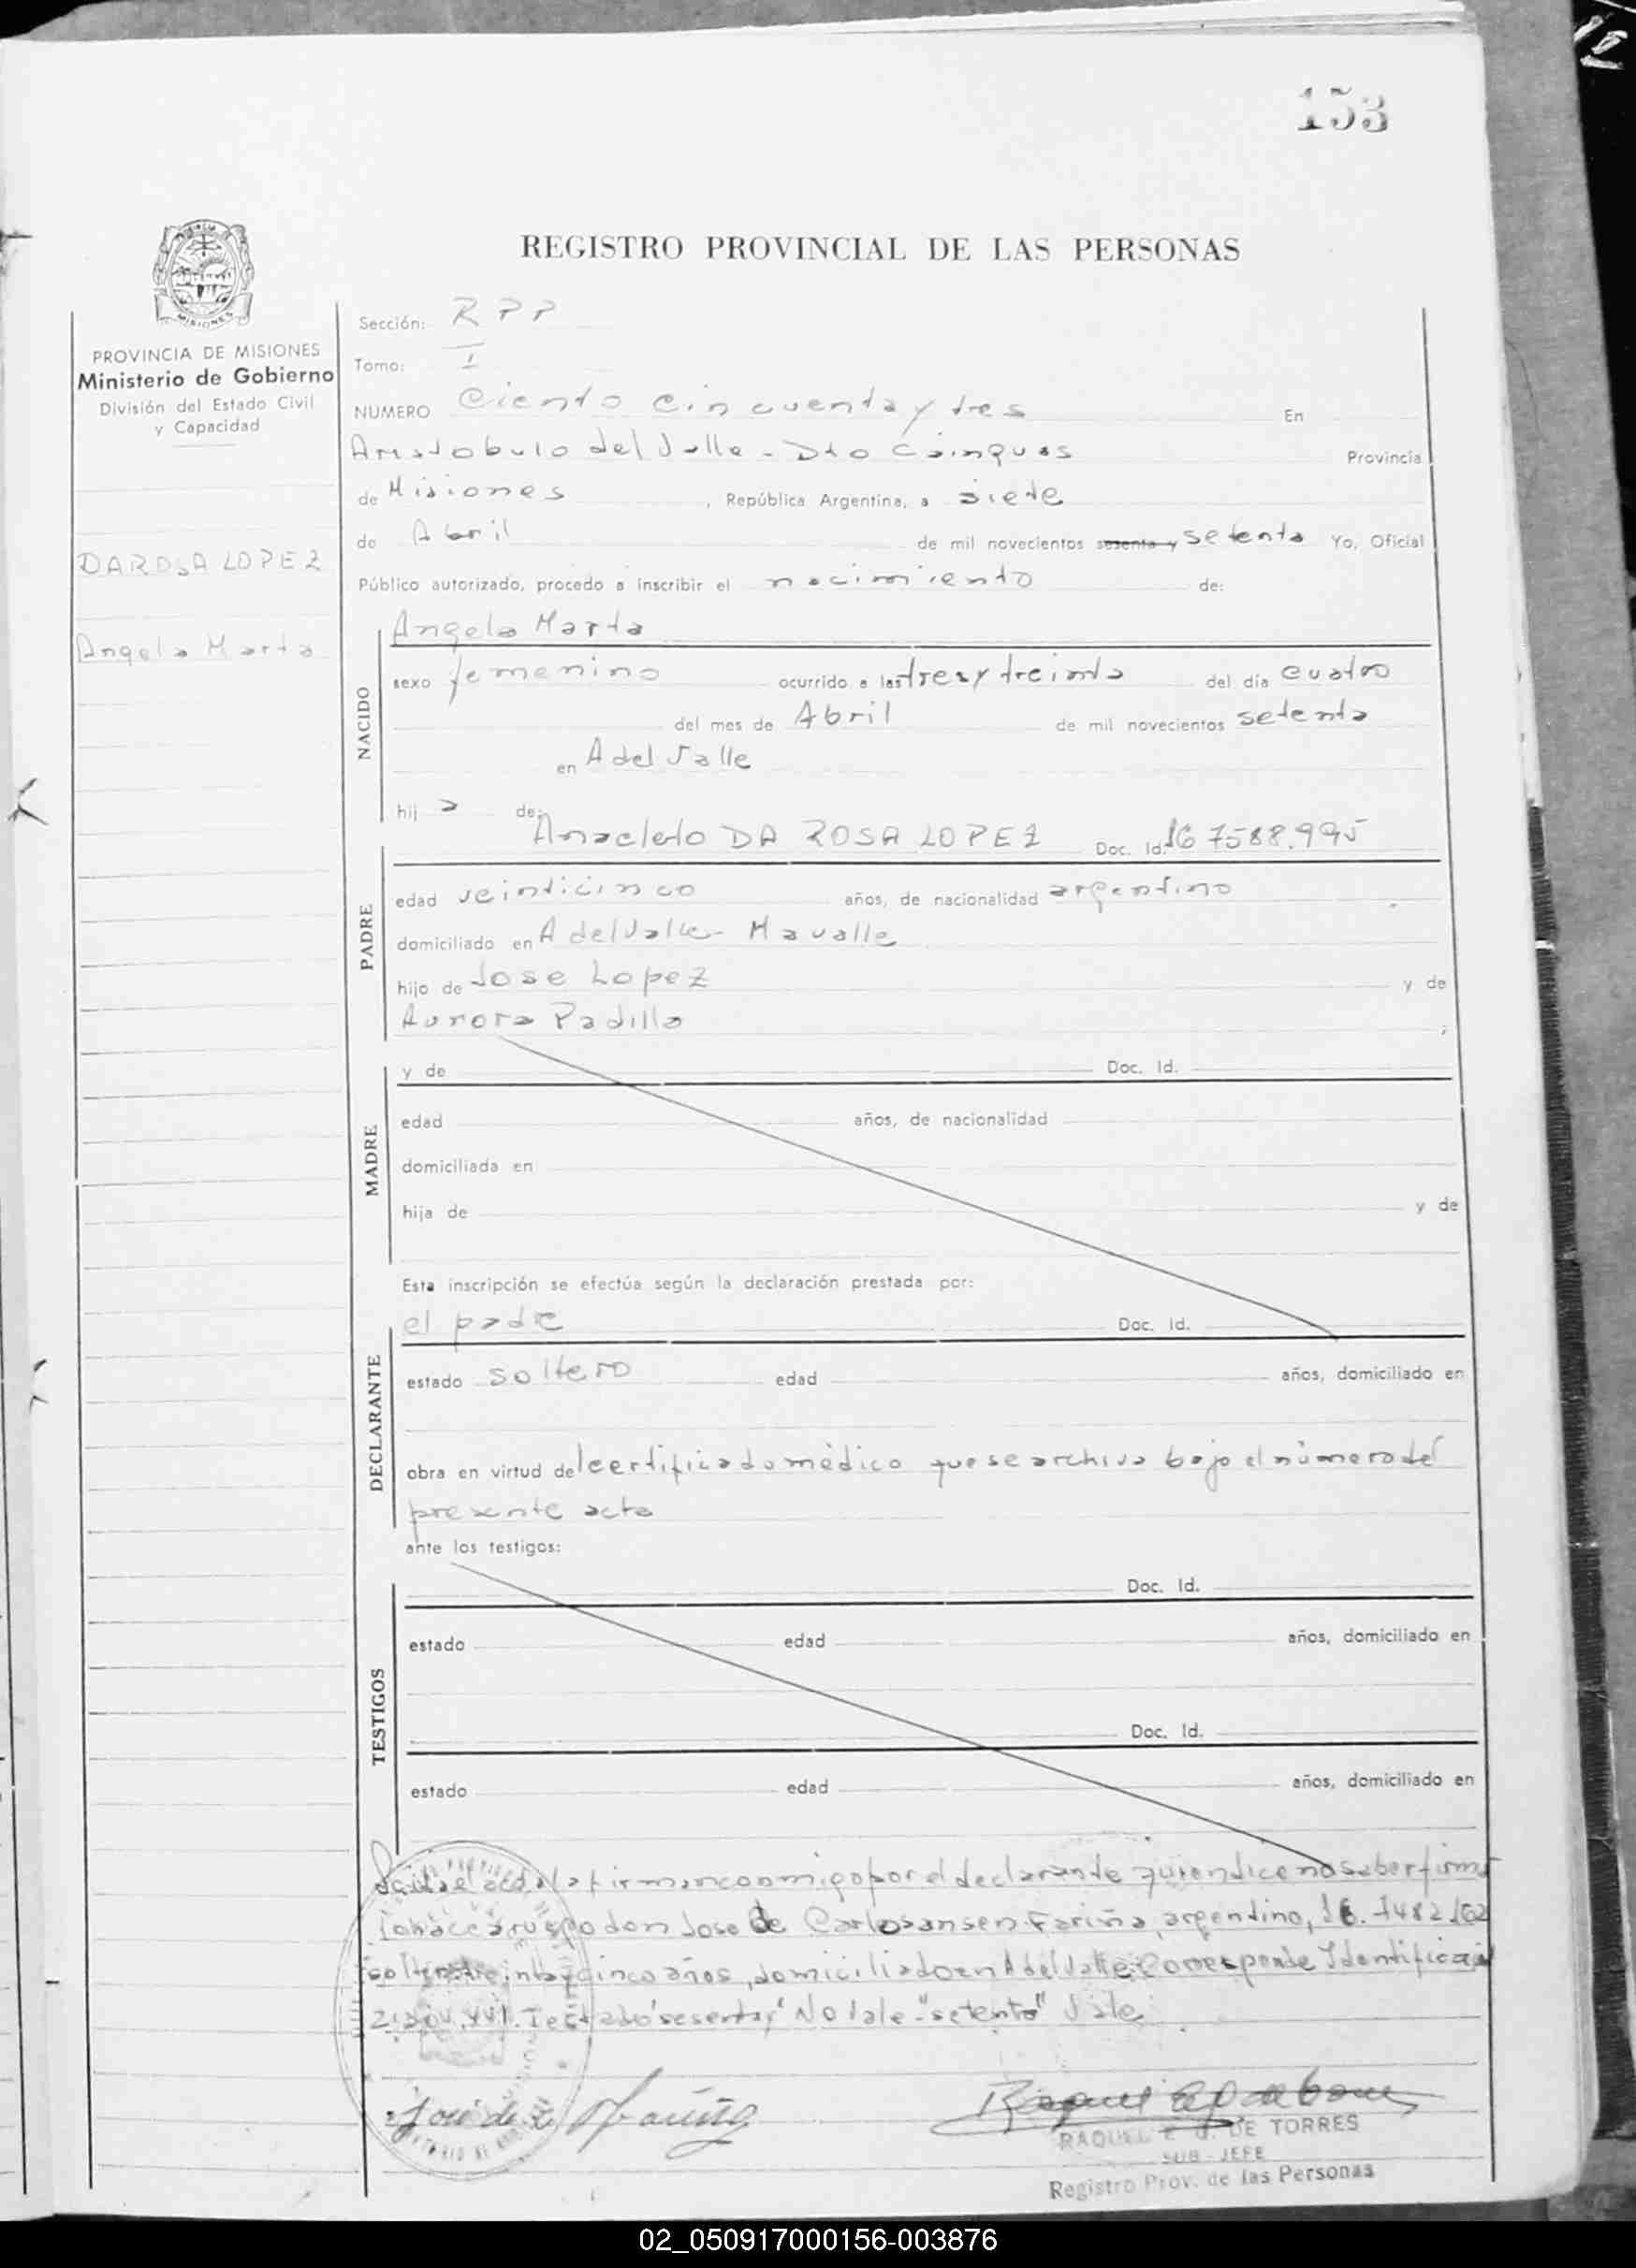 153
REGISTRO PROVINCIAL DE LAS PERSONAS
MISIONES
PROVINCIA DE MISIONES
Ministerio de Gobierno
División del Estado Civil
y Capacidad
DA ROSA LOPEZ
Angela Marta
Sección: RPP
Tomo: I
NUMERO Ciento cincuenta y tres En
Aristobulo del Valle - Dto Cainguas Provincia
de Misiones, República Argentina, a siete
de Abril de mil novecientos sesenta y setenta Yo, Oficial
Público autorizado, procedo a inscribir el nacimiento de:
NACIDO
Angela Marta
sexo femenino ocurrido a las tres y treinta del día cuatro
del mes de Abril de mil novecientos setenta
en A del Valle
hij a de:
PADRE
Anacleto DA ROSA LOPEZ Doc. Id. 7588.995
edad veinticinco años, de nacionalidad argentino
domiciliado en A del Valle - Mavalle
hijo de Jose Lopez y de
Aurora Padilla ;
MADRE
y de Doc. Id.
edad años, de nacionalidad
domiciliada en
hija de y de
Esta inscripción se efectúa según la declaración prestada por:
DECLARANTE
el padre Doc. Id.
estado soltero edad años, domiciliado en
obra en virtud del certificado médico que se archiva bajo el número del
presente acta
ante los testigos:
TESTIGOS
Doc. Id.
estado edad años, domiciliado en
Doc. Id.
estado edad años, domiciliado en
acta la firman conmigo por el declarante quien dice no saber firmar
lo hace a ruego don Jose de Carlosansen Fariña, argentino,
soltero treinta y cinco años, domiciliado en A del Valle Corresponde
Testado "sesenta y" No Vale - "setenta" Vale
José de Fariña
RAQUEL E. G. DE TORRES
SUB - JEFE
Registro Prov. de las Personas
02_050917000156-003876